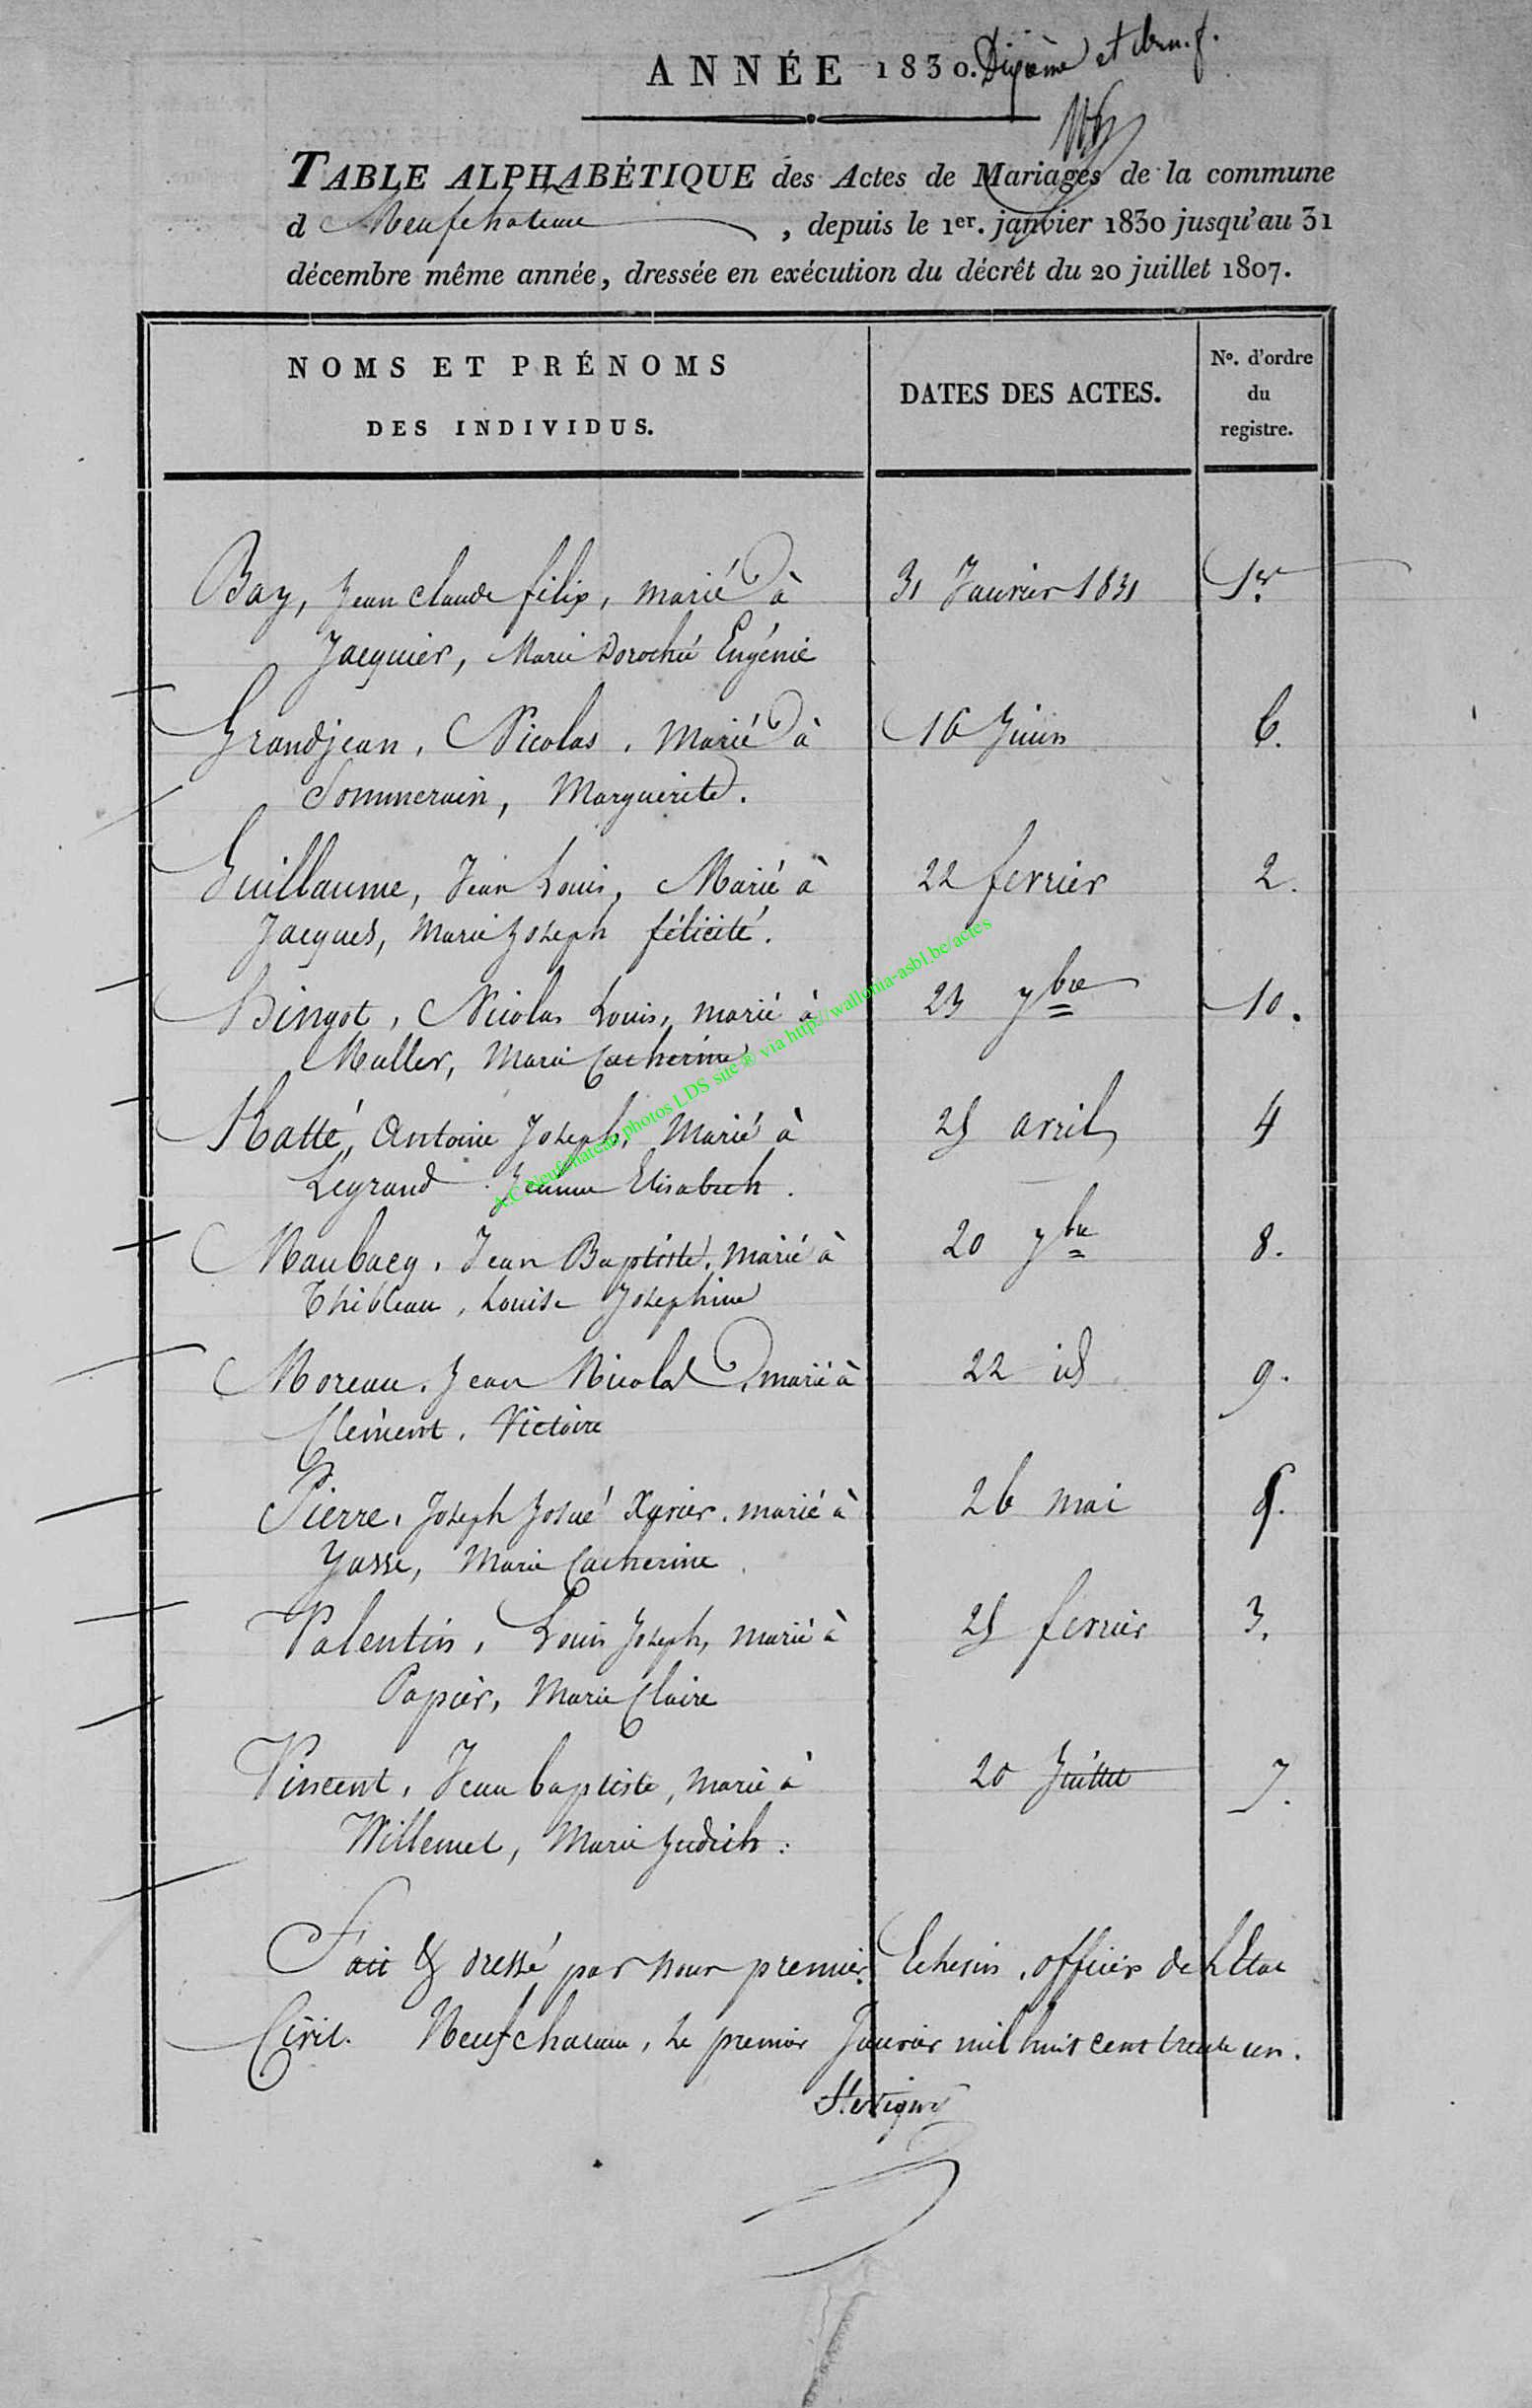 ANNÉE 1830. Dixième et
TABLE ALPHABÉTIQUE des Actes de Mariages de la commune
d Neufchateau , depuis le 1er. janvier 1830 jusqu'au 31
décembre même année, dressée en exécution du décrêt du 20 juillet 1807.
NOMS ET PRÉNOMS
DES INDIVIDUS.
DATES DES ACTES.
No. d'ordre
du
registre.
Bay, Jean Claude félix, marié à 31 Janvier 1831 1er
Jacquier, Marie Dorothé Eugénie
Grandjean, Nicolas, Marié à 16 Juin 6.
Sommerain, Marguerite.
Guillaume, Jean Louis, Marié à 22 fevrier 2.
Jacques, Marie Joseph félicité.
Hingot, Nicolas Louis, marié à 23 9bre 10.
Muller, Marie Catherine
Katté, Antoine Joseph, Marié à 25 avril 4
Legrand Jeanne Elisabeth.
Maubacq, Jean Baptiste, marié à 20 7bre 8.
Thibleau, Louise Josephine
Moreau, Jean Nicolas, marié à 22 id 9.
Clément, Victoire
Pierre, Joseph Josué Xavier, marié à 26 mai 5.
Yasse, Marie Catherine
Valentin, Louis Joseph, marié à 25 fevrier 3.
Papier, Marie Claire
Vincent, Jean baptiste, marié à 20 Juillet 7.
Willemet, Marie Judith.
Fait & dressé par nous premier Echevin, officier de L'Etat
Civil. Neufchateau, Le premier Janvier mil huit cent trente un.
A.C. Neufchateau photos LDS site ® via http://wallonia-asbl.be/actes